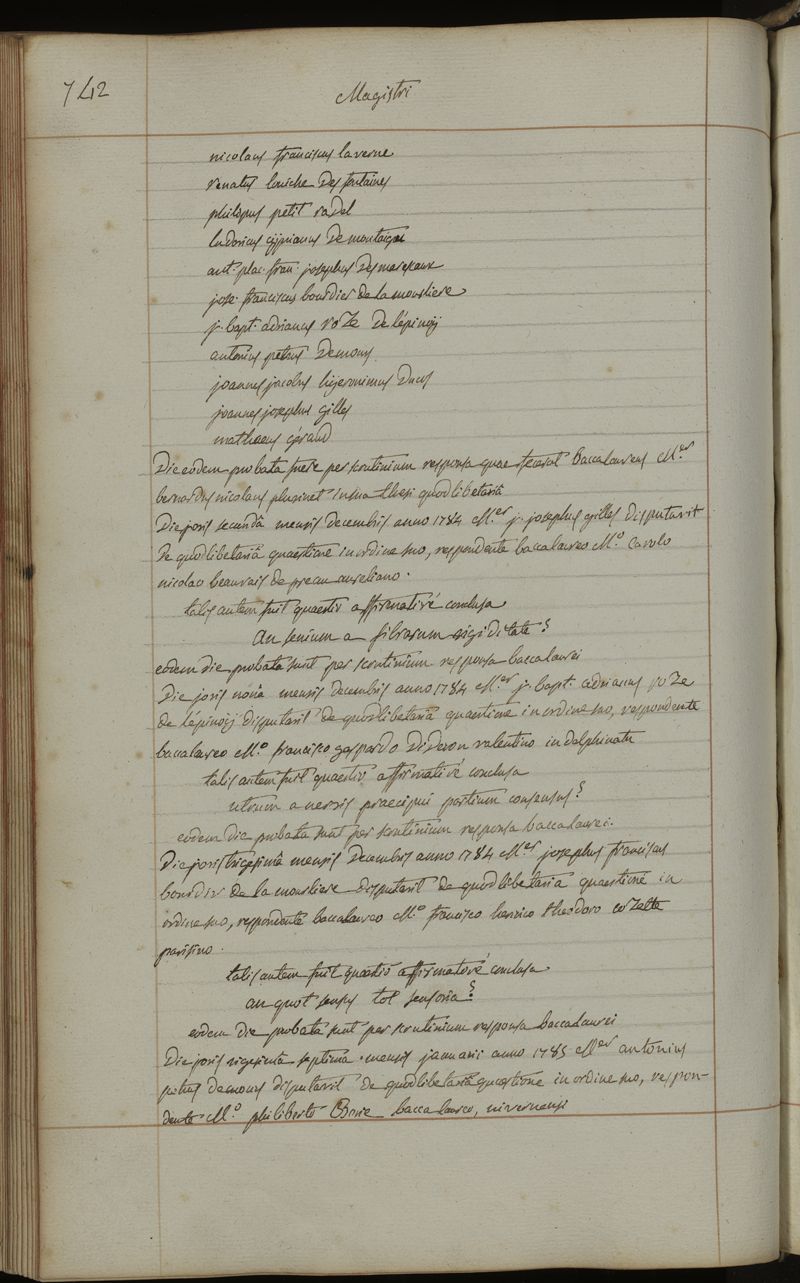 742
Magistri
nicolaus franciscus laverne
renatus louiche Desfontaines
philippus petit radel
ludovicus cyprianus De montaigu
ant. plac. fran. josephus Desmareseaux
jose. franciscus bourdier de la mousliere
j. bapt. adrianus roZe De lépinoij
antonius petrus Demours
joannes jacobus hijeronimus Ducs
joannes josephus gilles
mathoeus géraud
Die eodem probata fuere per scrutinium responsa quae fecerat Baccalaureus M.er
bernardus nicolaus plusinet in sua thesi quodlibetariâ
Die jovis secundâ mensis decembris anno 1784 M.er j. josephus gilles disputavit
De quodlibetariâ quaestione in ordine suo, respondente baccalaureo M.o carolo
nicolao beauvais de preau aureliano.
talis autem fuit quaestio affirmativé conclusa
An senium a fibrarum rigiditate?
eodem die probata sunt per scrutinium responsa baccalaurei
Die jovis nonâ mensis decembris anno 1784 M.er j. bapt. adrianus roZe
de lépinoij disputavit de quodlibetariâ quaestione in ordine suo, respondente
baccalaureo M.o francisco gaspardo Dideron valentino in delphinatu
talis autem fuit quaestio affirmativé conclusa
utrum a nervis praecipui partium consensus?
eodem die probata sunt per scrutinium responsa baccalaurei.
Die jovis trigesimâ mensis Decembris anno 1784 M.er josephus franciscus
bourdier de la mousliere disputavit de quodlibetaria quaestione in
ordine suo, respondente baccalaureo M.o francisco henrico theodoro coZette
parisino.
talis autem fuit quaestio affirmativé conclusa
an quot sensus tot sensoria?
eodem die probata sunt per scrutinium responsa baccalaurei
Die jovis vigesimâ septimâ mensis januarii anno 1785 M.er antonius
petrus demours disputavit de quodlibetariâ quaestione in ordine suo, respon-
dente M.o philiberto Borie baccalaureo, nivernensi